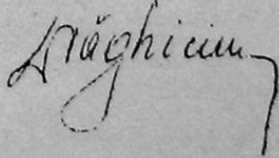 Drăghiciu